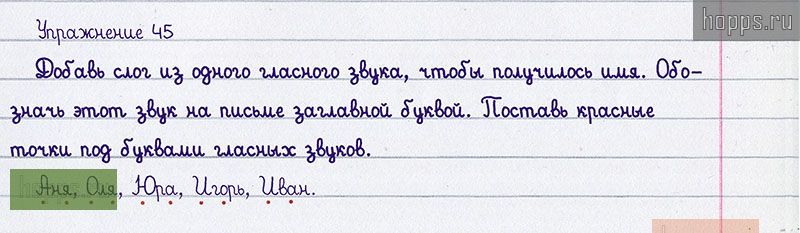 hopps.ru
Упражнение 45
Добавь слог из одного гласного звука, чтобы получилось имя. Обо-
значь этот звук на письме заглавной буквой. Поставь красные
точки под буквами гласных звуков.
Аня, Оля, Юра, Игорь, Иван.